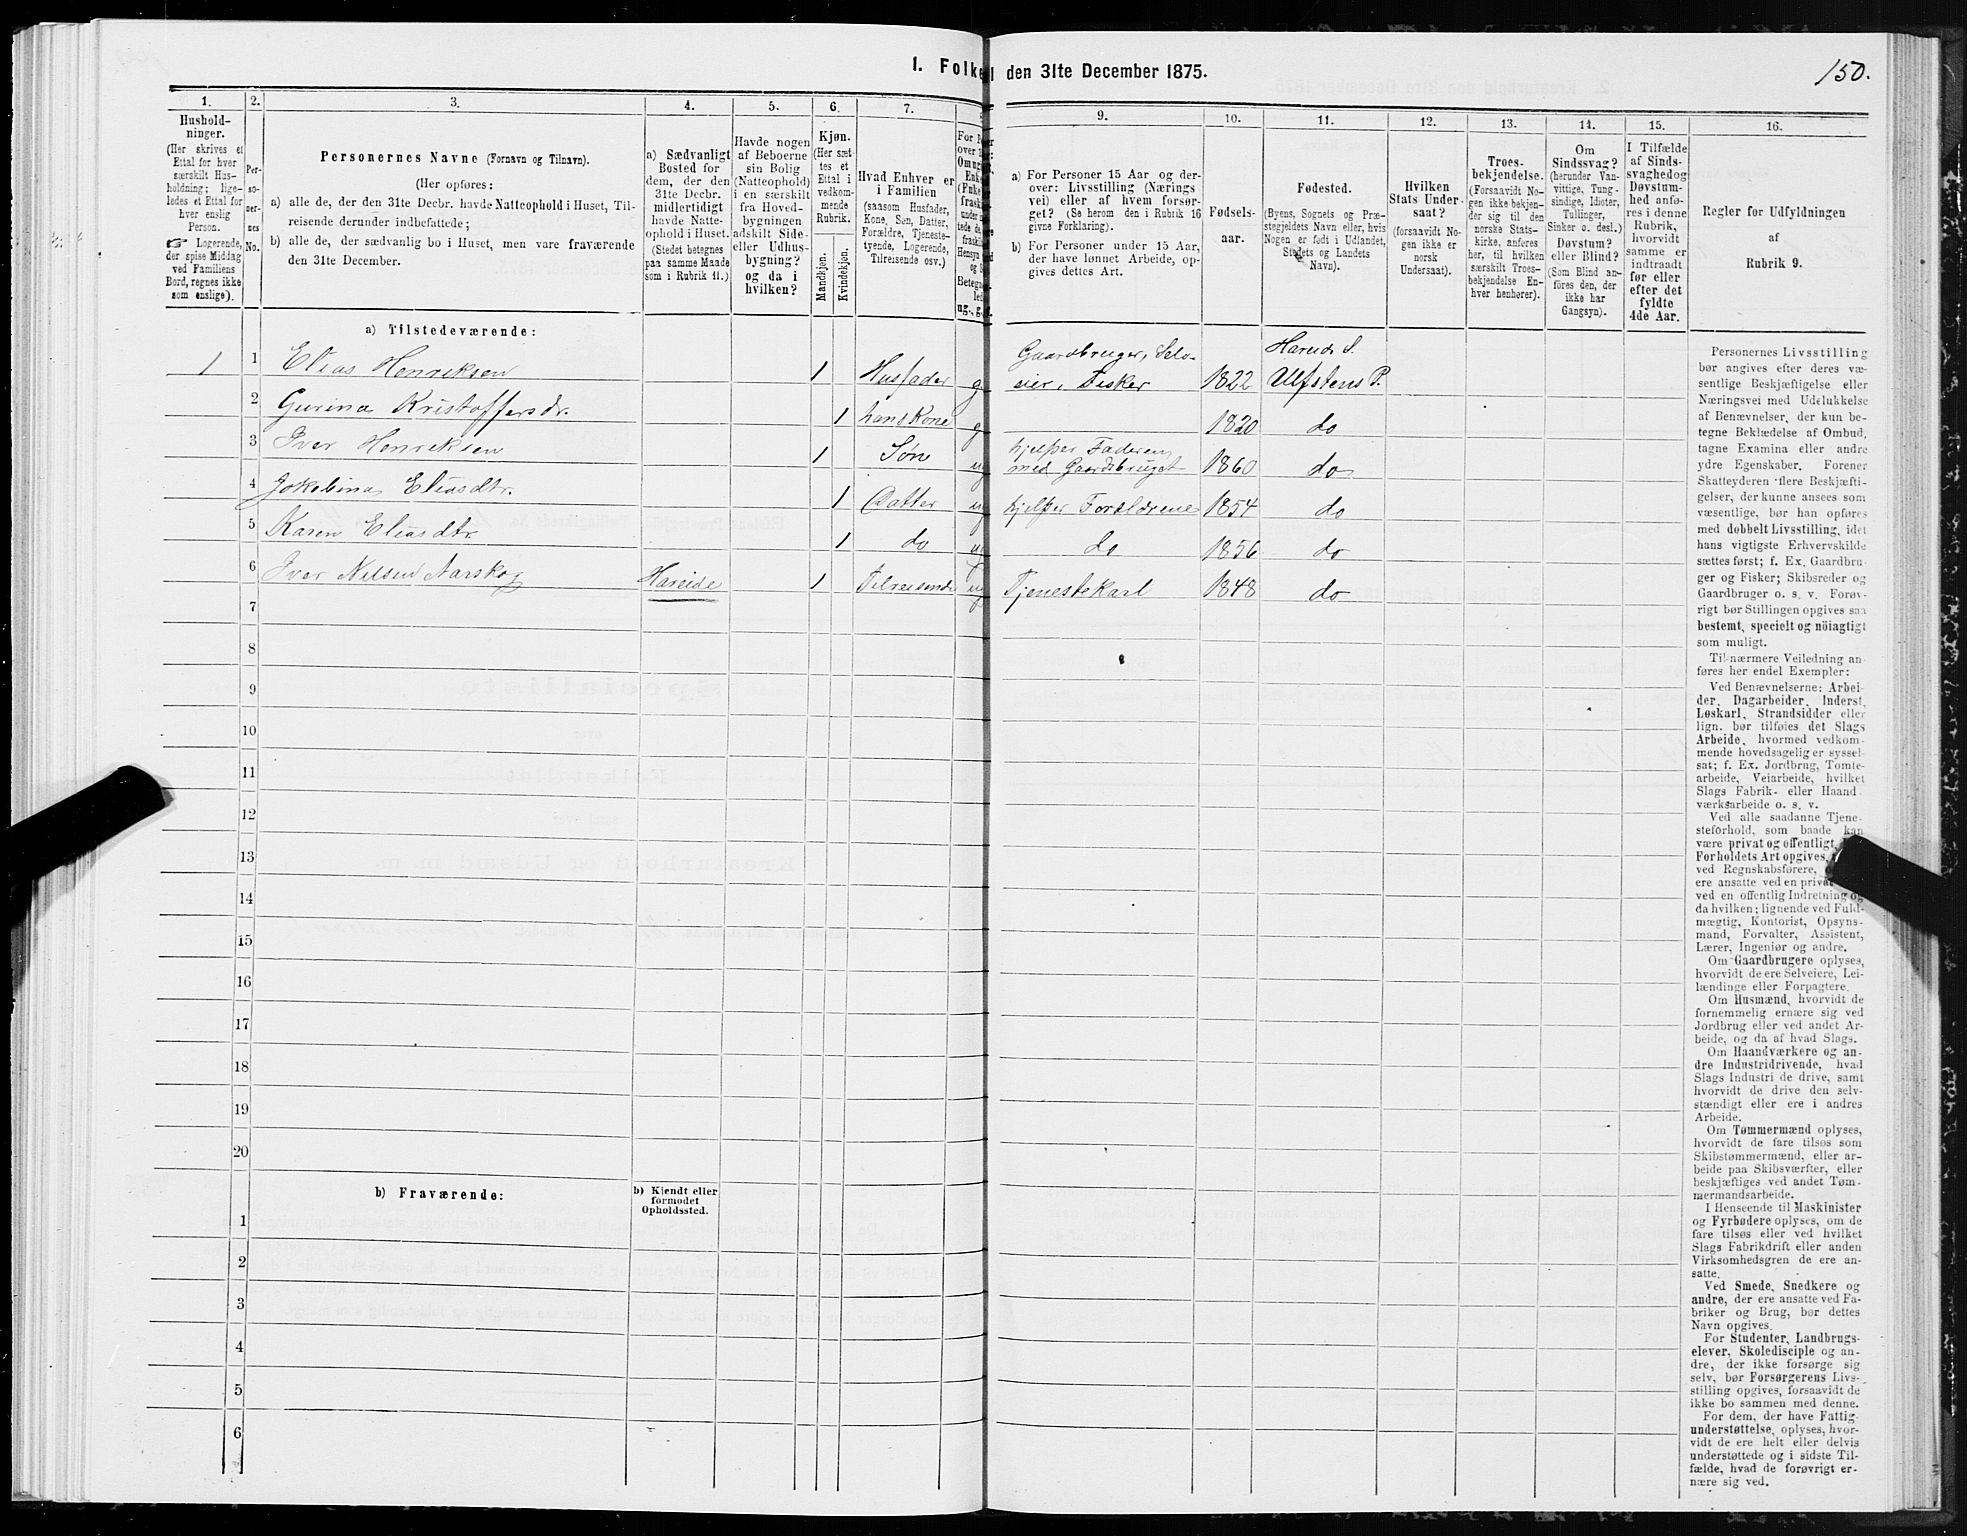 I. Folke
1.
2.
3.
4.
5.
6.
7.
Hushold-
ninger.
(Her skrives et
Ettal for hver
særskilt Hus-
holdning; lige-
ledes et Ettal for
hver enslig
Person.
☞ Logerende,
der spise Middag
ved Familiens
Bord, regnes ikke
som enslige).
Per-
so-
ner-
nes
No.
Personernes Navne (Fornavn og Tilnavn).
(Her opføres:
a) alle de, der den 31te Decbr. havde Natteophold i Huset, Til-
reisende derunder indbefattede;
b) alle de, der sædvanlig bo i Huset, men vare fraværende
den 31te December.
a) Sædvanligt
Bosted for
dem, der den
31te Decbr.
midlertidigt
havde Natte-
ophold i Huset.
(Stedet betegnes
paa samme Maade
som i Rubrik 11.)
Havde nogen
af Beboerne
sin Bolig
(Natteophold)
i en særskilt
fra Hoved-
bygningen
adskilt Side-
eller Udhus-
bygning?
og da i
hvilken?
Kjøn.
(Her sæt-
tes et
Ettal i
vedkom-
mende
Rubrik.
Mandkjøn.
Kvindekjøn.
Hvad Enhver er
i Familien
(saasom Husfader,
Kone, Søn, Datter,
Forældre, Tjeneste-
tyende, Logerende,
Tilreisende osv.)
a) Tilstedeværende:
1 1 Elias Henriksen 1 Husfader g.
2 Gurina Kristoffersdr. 1 hans Kone g
3 Iver Henriksen 1 Søn ug
4 Jokobina Eliasdtr. 1 Datter ug
5 Karen Eliasdtr. 1 do ug
6 Iver Nilsen Aarskog Hareide 1 Tilreisende ug
7
8
9
10
11
12
13
14
15
16
17
18
19
20
b) Fraværende:
b) Kjendt eller
formodet
Opholdssted.
1
2
3
4
5
6
den 31te December 1875.
150.
9.
10.
11.
12.
13.
14.
15.
16.
a) For Personer 15 Aar og der-
over: Livsstilling (Nærings
vei) eller af hvem forsør-
get? (Se herom den i Rubrik 16
givne Forklaring).
b) For Personer under 15 Aar,
der have lønnet Arbeide, op-
gives dettes Art.
Fødsels-
aar.
Fødested.
(Byens, Sognets og Præ-
stegjeldets Navn eller, hvis
Nogen er født i Udlandet,
Stedets og Landets
Navn).
Hvilken
Stats Under-
saat?
(forsaavidt No-
gen ikke er
norsk
Undersaat).
Troes-
bekjendelse.
(Forsaavidt No-
gen ikke bekjen-
der sig til den
norske Stats-
kirke, anføres
her, til hvilken
særskilt Troes-
bekjendelse En-
hver henhører).
Om
Sindssvag?
(herunder Van-
vittige, Tung-
sindige, Idioter,
Tullinger,
Sinker o. desl.)
Døvstum?
eller Blind?
(Som Blind an-
føres den, der
ikke har
Gangsyn).
I Tilfælde
af Sinds-
svaghed og
Døvstum-
hed anfø-
res i denne
Rubrik,
hvorvidt
samme er
indtraadt
før eller
efter det
fyldte
4de Aar.
Regler for Udfyldningen
af
Rubrik 9.
Gaardbruger, Selv- Hareids S.
eier, Fisker 1822 Ulfstens P.
1820 do
hjelper Faderen
med Gaardsbruget 1860 do
hjelper Forældrene 1854 do
do 1856 do
Tjenestekarl 1848 do
Personernes Livsstilling
bør angives efter deres væ-
sentlige Beskjæftigelse eller
Næringsvei med Udelukkelse
af Benævnelser, der kun be-
tegne Beklædelse af Ombud,
tagne Examina eller andre
ydre Egenskaber. Forener
Skatteyderen flere Beskjæfti-
gelser, der kunne ansees som
væsentlige, bør han opføres
med dobbelt Livsstilling, idet
hans vigtigste Erhvervskilde
sættes først; f. Ex. Gaardbru-
ger og Fisker; Skibsreder og
Gaardbruger o. s. v. Forøv-
rigt bør Stillingen opgives saa
bestemt, specielt og nöiagtigt
som muligt.
Til nærmere Veiledning an-
føres her endel Exempler:
Ved Benævnelserne: Arbei-
der, Dagarbeider, Inderst,
Løskarl, Strandsidder eller
lign. bør tilføies det Slags
Arbeide, hvormed vedkom-
mende hovedsagelig er syssel-
sat; f. Ex. Jordbrug, Tomte-
arbeide, Veiarbeide, hvilket
Slags Fabrik- eller Haand-
værksarbeide o. s. v.
Ved alle saadanne Tjene-
steforhold, som baade kan
være privat og offentligt,
Forholdets Art opgives,
ved Regnskabsførere,
ere ansatte ved en privat
ved en offentlig Indretning og
da hvilken; lignende ved Fuld-
mægtig, Kontorist, Opsyns-
mand, Forvalter, Assistent,
Lærer, Ingeniør og andre.
Om Gaardbrugere oplyses,
hvorvidt de ere Selveiere, Lei-
lændinge eller Forpagtere.
Om Husmænd, hvorvidt de
fornemmelig ernære sig ved
Jordbrug eller ved andet Ar-
beide, og da af hvad Slags.
Om Haandværkere og an-
dre Industridrivende, hvad
Slags Industri de drive, samt
hvorvidt de drive den selv-
stændigt eller ere i andres
Arbeide.
Om Tømmermænd oplyses,
hvorvidt de fare tilsøs som
Skibstømmermænd, eller ar-
beide paa Skibsværfter, eller
beskjæftiges ved andet Tøm-
mermandsarbeide.
I Henseende til Maskinister
og Fyrbødere oplyses, om de
fare tilsøs eller ved hvilket
Slags Fabrikdrift eller anden
Virksomhedsgren de ere an-
satte.
Ved Smede, Snedkere og
andre, der ere ansatte ved Fa-
briker og Brug, bør dettes
Navn opgives.
For Studenter, Landbrugs-
elever, Skoledisciple og an-
dre, der ikke forsørge sig
selv, bør Forsørgerens Livs-
stilling opgives, forsaavidt de
ikke bo sammen med denne.
For dem, der have Fattig-
understøttelse, oplyses, hvor-
vidt de ere helt eller delvis
understøttede og i sidste Til-
fælde, hvad de forøvrigt er-
nære sig ved.